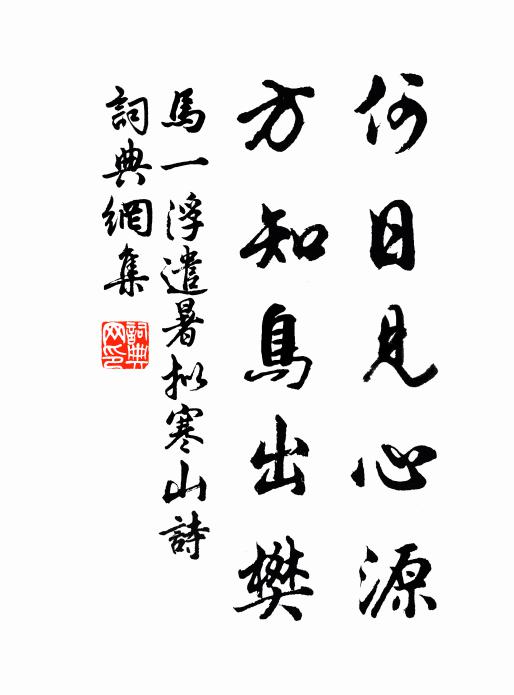 何日見心源
方知鳥出樊
馬一浮遣暑拟寒山詩
詞典網集
詞典
网印